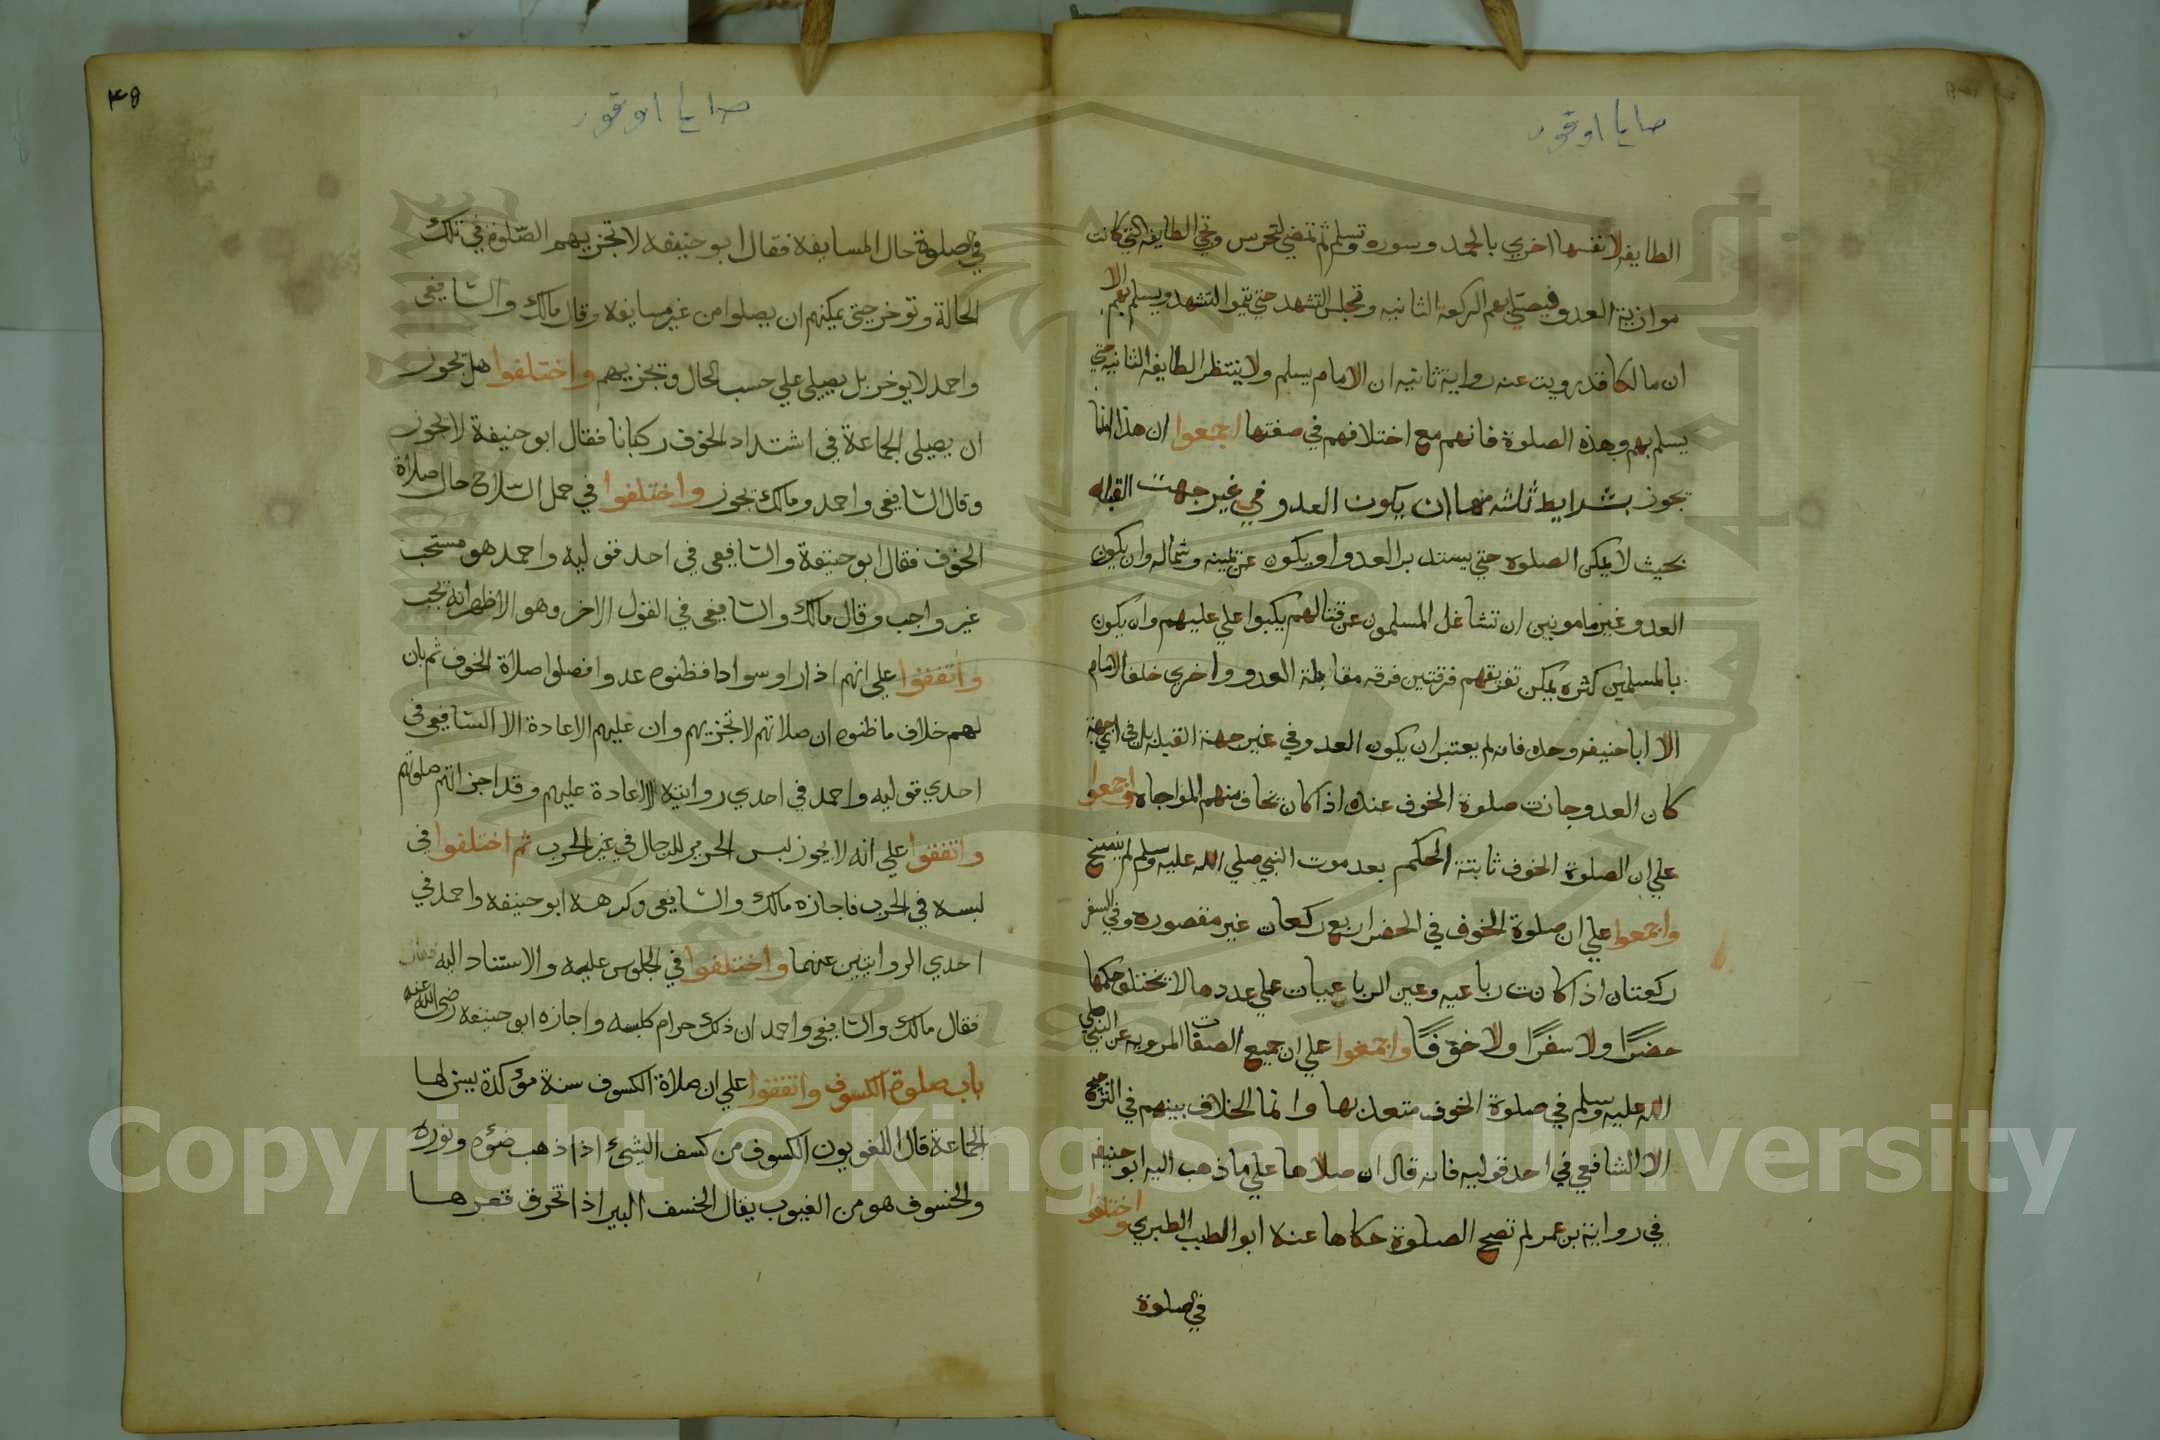 الطايفه لانفسها اخري بالحمد وسوره وتسلم ثم تمضي لتحرس وتجي الطايفه التي كانت
موازية العدو فيصلي بهم الركعة الثانيه وتجلس للتشهد حتي يتموا التشهد ويسلم بهم الا
ان مالكا قد رويت عنه رواية ثانيه ان الامام يسلم ولا ينتظر الطايفه الثانيه حتي
يسلم بهم وهذه الصلوة فانهم مع اختلافهم في صفتها اجمعوا ان هذا انما
يجوز بشرايط ثلثه منها ان يكون العدو في غير جهت القبله
بحيث لا يمكن الصلوه حتي يستدبر العدو او يكون عن يمينه وشماله وان يكون
العدو غير مامونين ان تشاغل المسلمون عن قتالهم يكبوا علي عليهم وان يكون
بالمسلمين كثره يمكن تفريقهم فرقتين فرقه مقابلة العدو واخري خلف الامام
الا ابا حنيفه وحده فانه لم يعتبر ان يكون العدو في غير جهة القبله بل في اي جهة
كان العدو جازت صلوة الخوف عنده اذا كان يخاف منهم المواجاه واجمعوا
علي ان الصلوة الخوف ثابتة الحكم بعد موت النبي صلي الله عليه وسلم لم ينسخ
واجمعوا علي ان صلوة الخوف في الحضر اربع ركعان غير مقصوره وفي السفر
ركعتان اذا كانت رباعيه وعين الرباعيات علي عددها لا تختلف حكمها
حضرًا ولا سفرًا ولا خوفًا واجمعوا علي ان جميع الصفات المرويه عن النبي صلي
الله عليه وسلم في صلوة الخوف متعد بها وانما الخلاف بينهم في الترجيح
الا الشافعي في احد قوليه فانه قال ان صلاها علي ما ذهب اليه ابو حنيفه
في رواية بن عمر لم تصح الصلوة حكاها عنه ابو الطيب الطبري واختلفوا
في صلوة
٤٥
في صلوة حال المسايفة فقال ابو حنيفه لا تجزيهم الصلوة في تلك
الحالة وتوخر حتي يمكنهم ان يصلوا من غير مسايفه وقال مالك والشافعي
واحمد لا يوخر بل يصلي علي حسب الحال وتجزيهم واختلفوا هل يجوز
ان يصلي الجماعة في اشتداد الخوف ركبانا فقال ابو حنيفة لا يجوز
وقال الشافعي واحمد ومالك يجوز واختلفوا في حمل السلاح حال صلاة
الخوف فقال ابو حنيفة والشافعي في احد قوليه واحمد هو مستحب
غير واجب وقال مالك والشافعي في القول الاخر وهو الاظهر انه يجب
واتفقوا علي انهم اذا راوا سوادا فظنوه عدوا فصلوا صلاة الخوف ثم بان
لهم خلاف ما ظنوه ان صلاتهم لا تجزيهم وان عليهم الاعادة الا الشافعي في
احدي قوليه واحمد في احدي روايتيه الاعادة عليهم وقد اجزاتهم صلوتهم
واتفقوا علي انه لا يجوز لبس الحرير للرجال في غير الحرب ثم اختلفوا في
لبسه في الحرب فاجازه مالك والشافعي وكرهه ابو حنيفه واحمد في
احدي الروايتين عنهما واختلفوا في الجلوس عليه والاستناد اليه
فقال مالك والشافعي واحمد ان ذلك حرام كلبسه واجازه ابو حنيفة رضي الله عنه
باب صلوة الكسوف واتفقوا علي ان صلاة الكسوف سنة مؤكدة يسن لها
الجماعة قال اللغويون الكسوف من كسف الشئ اذا ذهب ضؤه ونوره
والخسوف هو من الغيوب يقال الخسف البير اذا تخرق قعرها
Copyright © King Saud University